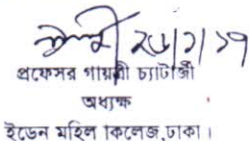 ২৬/১/১৭
প্রফেসর গায়ত্রী চ্যাটার্জী
অধ্যক্ষ
ইডেন মহিলা কলেজ,ঢাকা।